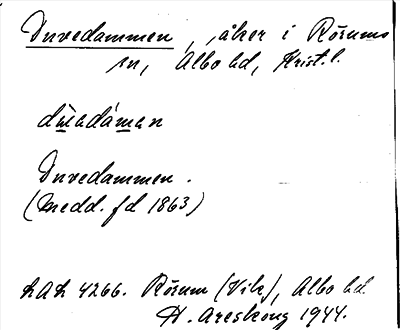 Duvedammen, åker i Rörums
sn, Albo hd, Krist.l.
dùvadáman
Duvedammen.
(Medd. fd 1863)
LAL 4266. Rörum (Vik), Albo hd.
H. Areskoug 1944.